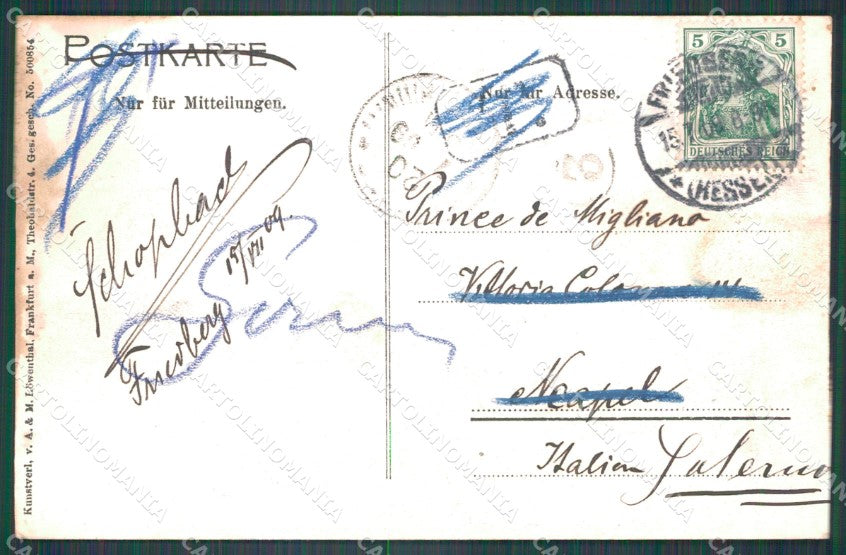 POSTKARTE
Nur für Mitteilungen.
Nur für Adresse.
5 5
DEUTSCHES REICH
FRIEDBERG
(HESSEN)
Kunstverl. v. A. & M. Löwenthal, Frankfurt a. M., Theobaldstr. 4. Ges. gesch. No. 500854
Friedberg
15/VII 09.
Prince de Migliano
Vittoria Colonna
Neapel
Italien Salerno
CARTOLINOMANIA